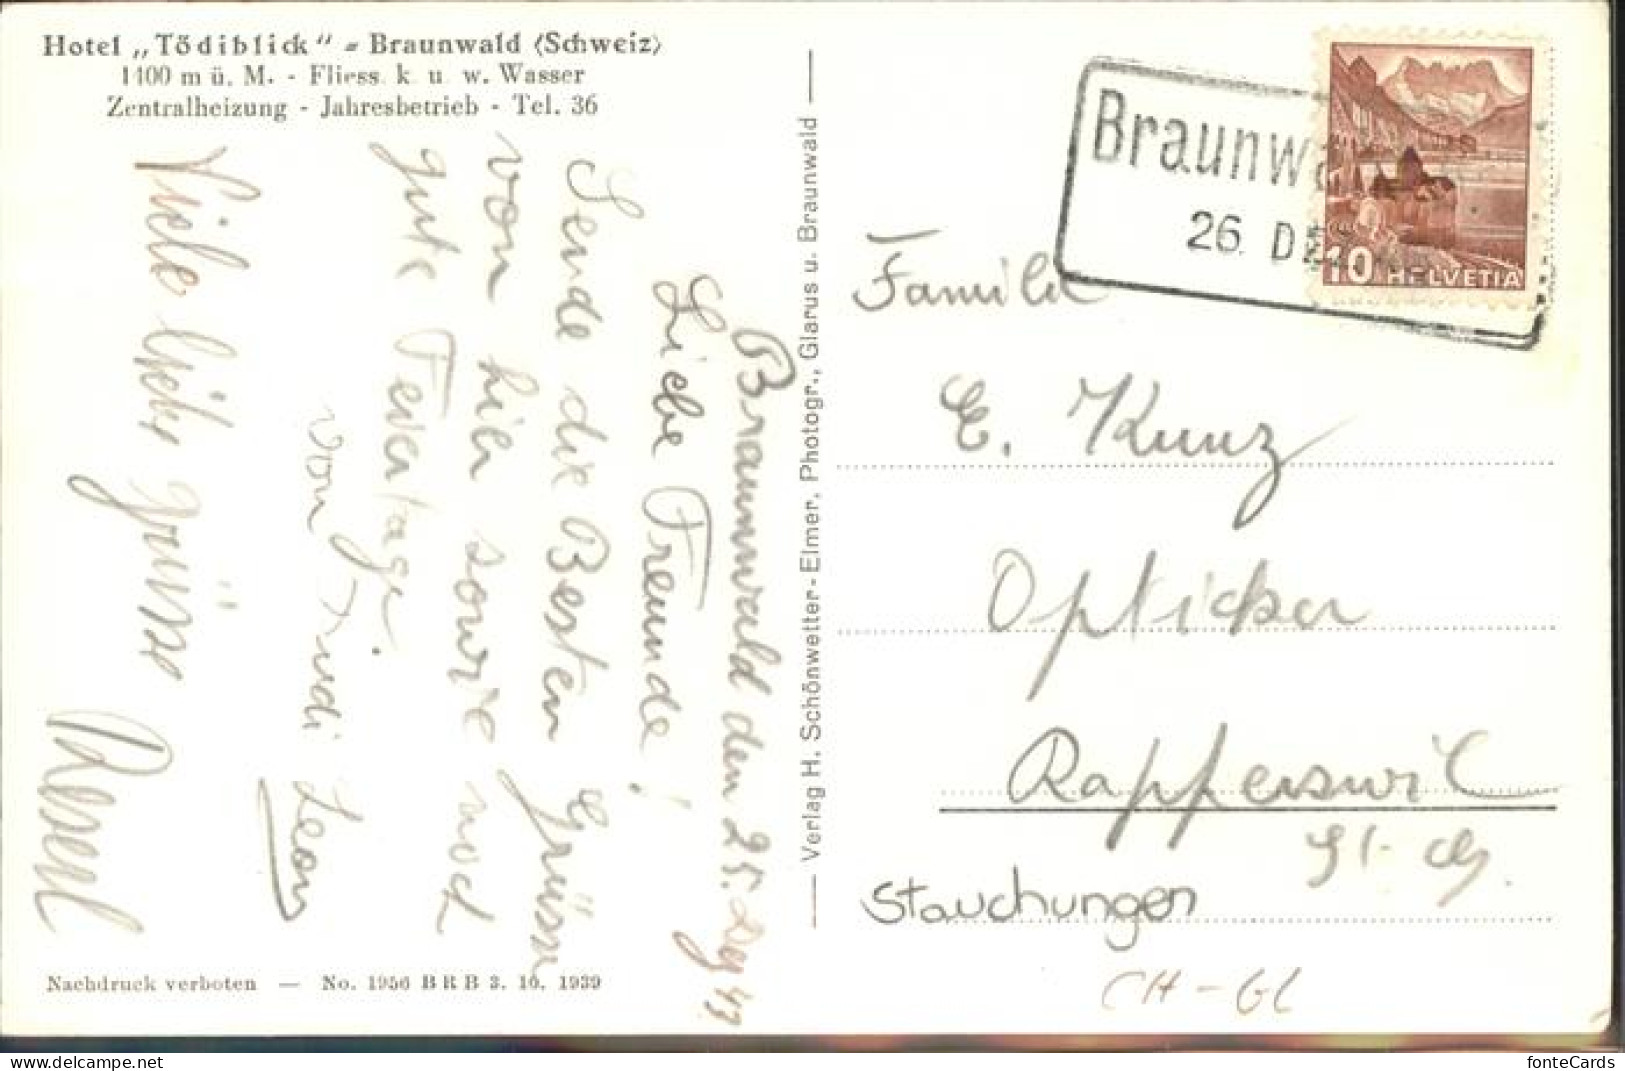 Hotel „Tödiblick“ - Braunwald (Schweiz)
1400 m ü. M. - Fliess. k. u. w. Wasser
Zentralheizung - Jahresbetrieb - Tel. 36
Braunwald den 25. Dez 42
Liebe Freunde!
Sende die Besten Grüsse
von hier sowie noch
gute Feiertage.
von Trudi Leon
Viele liebe Grüsse
Verlag H. Schönwetter-Elmer, Photogr., Glarus u. Braunwald
Braunwa
26. DE
10 HELVETIA
Familie
E. Kunz
Optiker
Rapperswil
St. Gg.
Stauchungen
CH-GL
Nachdruck verboten — No. 1956 BRB 3. 10. 1939
fonteCards